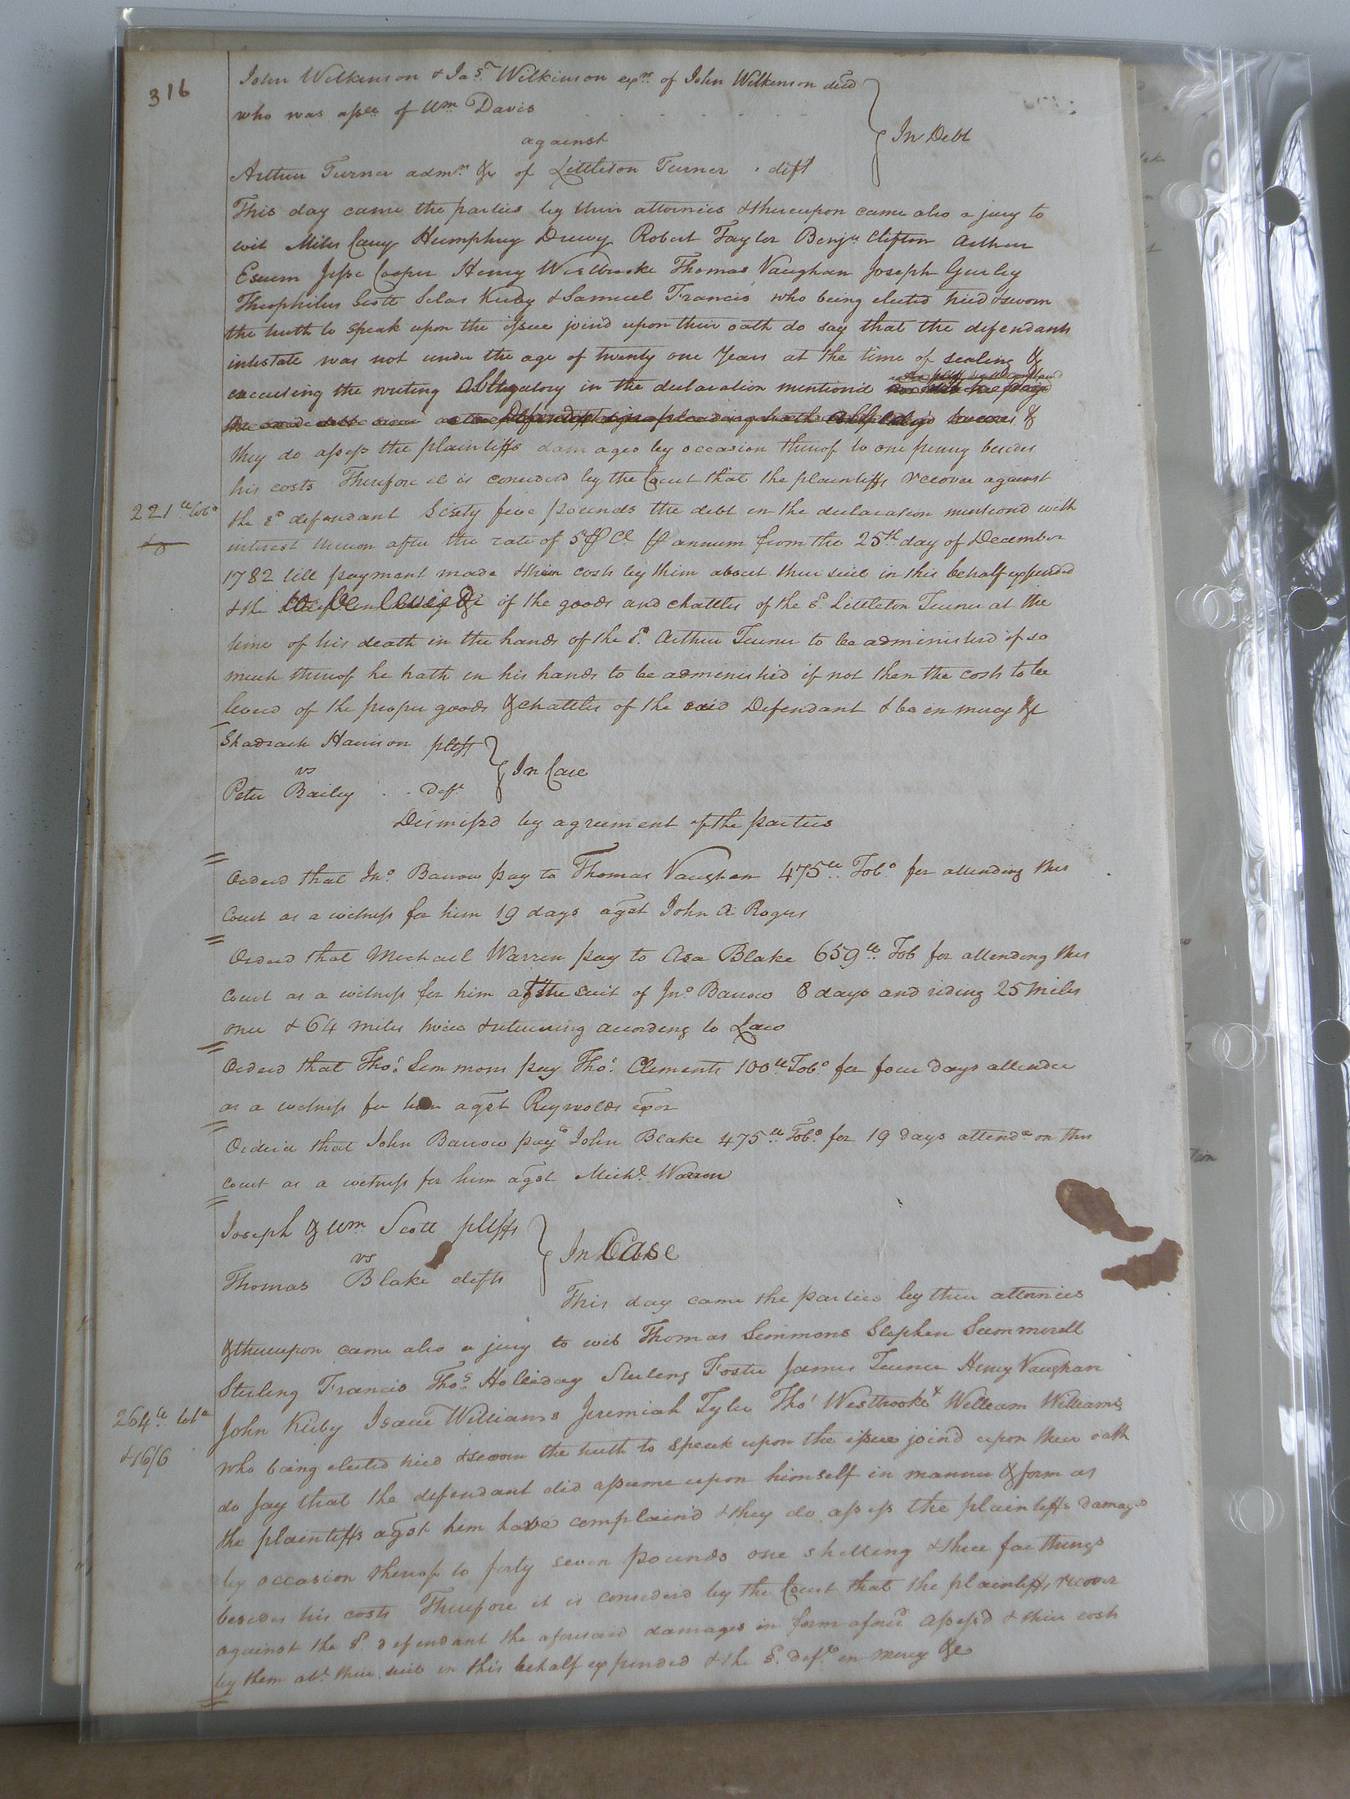 316
John Wilkinson & Jas. Wilkinson exrs of John Wilkinson decd
who was assee of Wm Davis
against
In Debt
Arthur Turner admr. &c of Littleton Turner . deft
This day came the parties by their attornies & thereupon came also a jury to
wit Miles Cary Humphry Drewy Robert Taylor Benja Clifton Arthur
Exum Jesse Cooper Henry Westbrooke Thomas Vaughan Joseph Gurley
Theophilus Scott Silas Kirby & Samuel Francis who being elected tried & sworn
the truth to speak upon the issue joind upon their oath do say that the defendants
intestate was not under the age of twenty one Years at the time of sealing &
executing the writing Obligatory in the declaration mentiond
&
they do assess the plaintiffs damages by occasion thereof to one penny besides
his costs Therefore it is considerd by the Court that the plaintiffs recover against
221 lb Tobo
the sd defendant Sixty five pounds the debt in the declaration mentiond with
interest thereon after the rate of 5 ⅌ Ct ⅌ annum from the 25th day of December
1782 till payment made & their costs by them about their suit in this behalf expended
& the of the goods and chattles of the sd Littleton Turner at the
time of his death in the hands of the sd Arthur Turner to be administerd if so
much thereof he hath in his hands to be administerd if not then the costs to be
levied of the proper goods & chattles of the said Defendant & be in mercy &c
Shadrach Harrison pltff
vs
In Case
Peter Bailey . . Deft
Dismissd by agreement of the parties
Orderd that Jno. Barrow pay to Thomas Vaughan 475 lb Tobo for attending this
Court as a witness for him 19 days agst John A Rogers
Orderd that Michael Warren pay to Asa Blake 659 lb Tob for attending this
Court as a witness for him at the suit of Jno. Barrow 8 days and riding 25 Miles
once & 64 miles twice & returning according to Law
Orderd that Thos. Simmons pay Thos. Clements 100 lb Tobo for four days attendce
as a witness for him agst Reynolds exor
Orderd that John Barrow pay John Blake 475 lb Tobo for 19 days attendce on this
Court as a witness for him agst Michl. Warren
Joseph & Wm Scott pltffs
vs
In Case
Thomas Blake deft
This day came the parties by their attornies
& thereupon came also a jury to wit Thomas Simmons Stephen Summerell
Sterling Francis Thos. Holliday Sterling Foster James Turner Henry Vaughan
264 lb Tobo
John Kirby Isaac Williams Jeremiah Tyler Thos. Westbrooke & William Williams
& 16/6
who being elected tried & sworn the truth to speak upon the issue joind upon their oath
do say that the defendant did assume upon himself in manner & form as
the plaintiffs agst him have complaind & they do assess the plaintiffs damages
by occasion thereof to forty seven pounds one shilling & three farthings
besides his costs Therefore it is considerd by the Court that the plaintiffs recover
against the sd defendant the aforesaid damages in form aforesd assessd & their costs
by them abt. their suit in this behalf expended & the sd deft in mercy &c